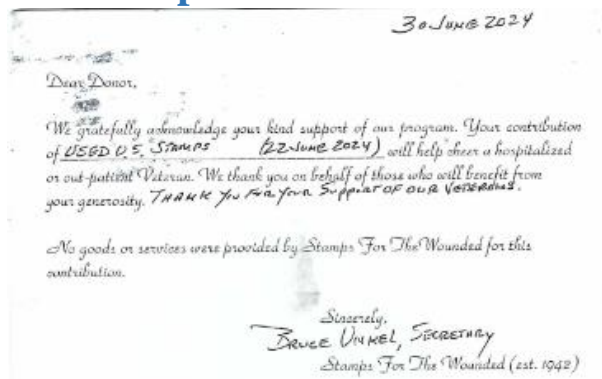 30 JUNE 2024
Dear Donor,
We gratefully acknowledge your kind support of our program. Your contribution
of USED U.S. STAMPS (22 JUNE 2024) will help cheer a hospitalized
or out-patient Veteran. We thank you on behalf of those who will benefit from
your generosity. THANK YOU FOR YOUR SUPPORT OF OUR VETERANS.
No goods or services were provided by Stamps For The Wounded for this
contribution.
Sincerely,
BRUCE UNKEL, SECRETARY
Stamps For The Wounded (est. 1942)